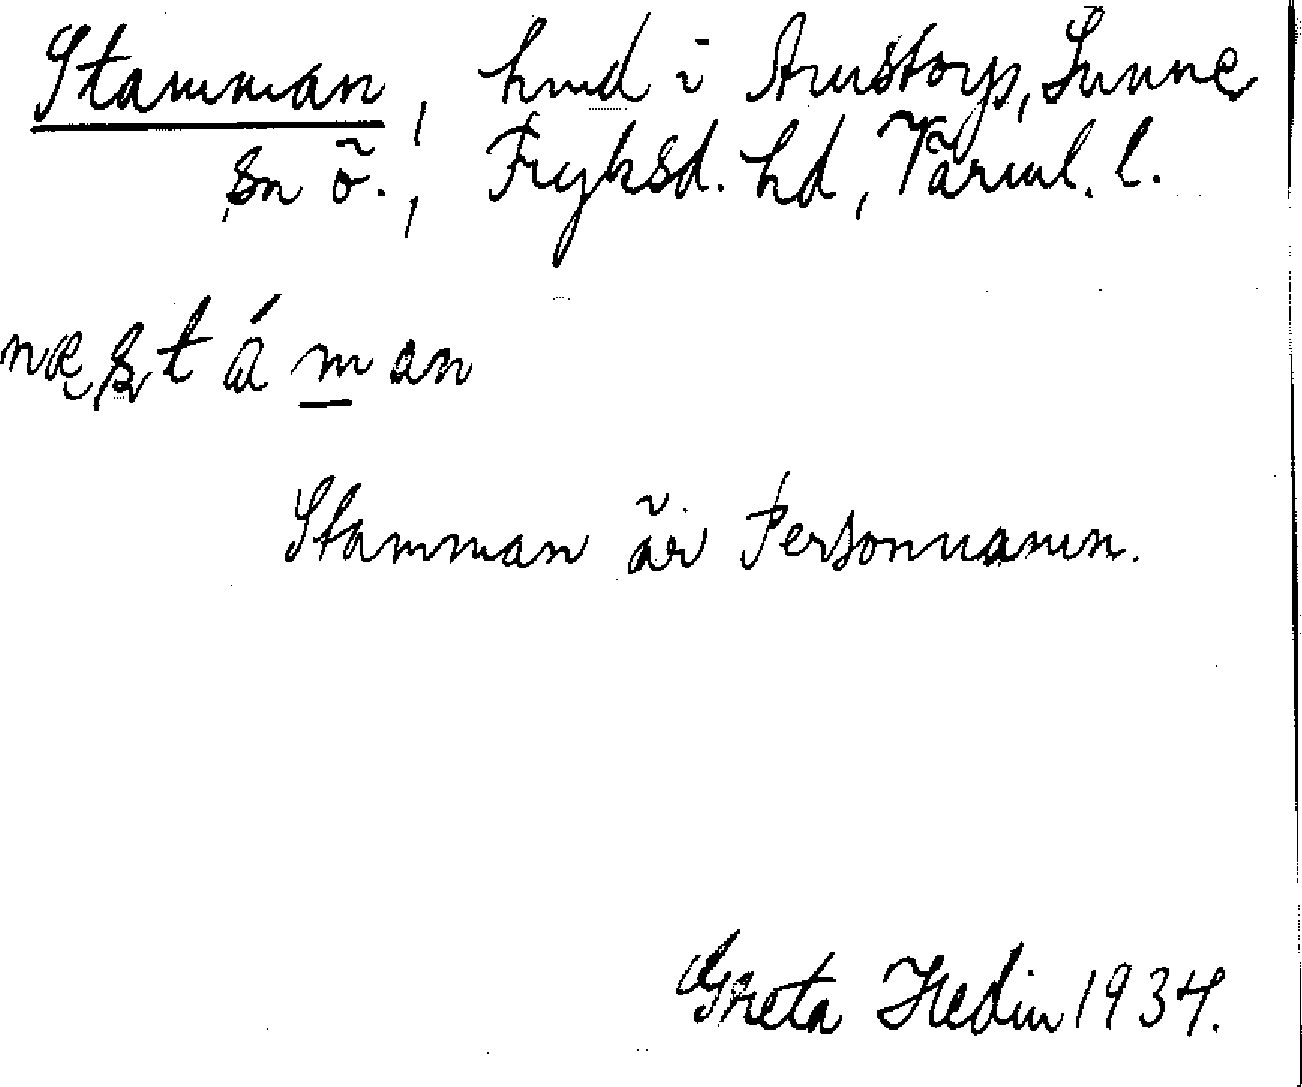 Stamman, hmd i Arnstorp, Sunne
sn ö., Fryksd. hd, Värml. l.
Stamman är Personnamn.
Greta Hedin 1934.